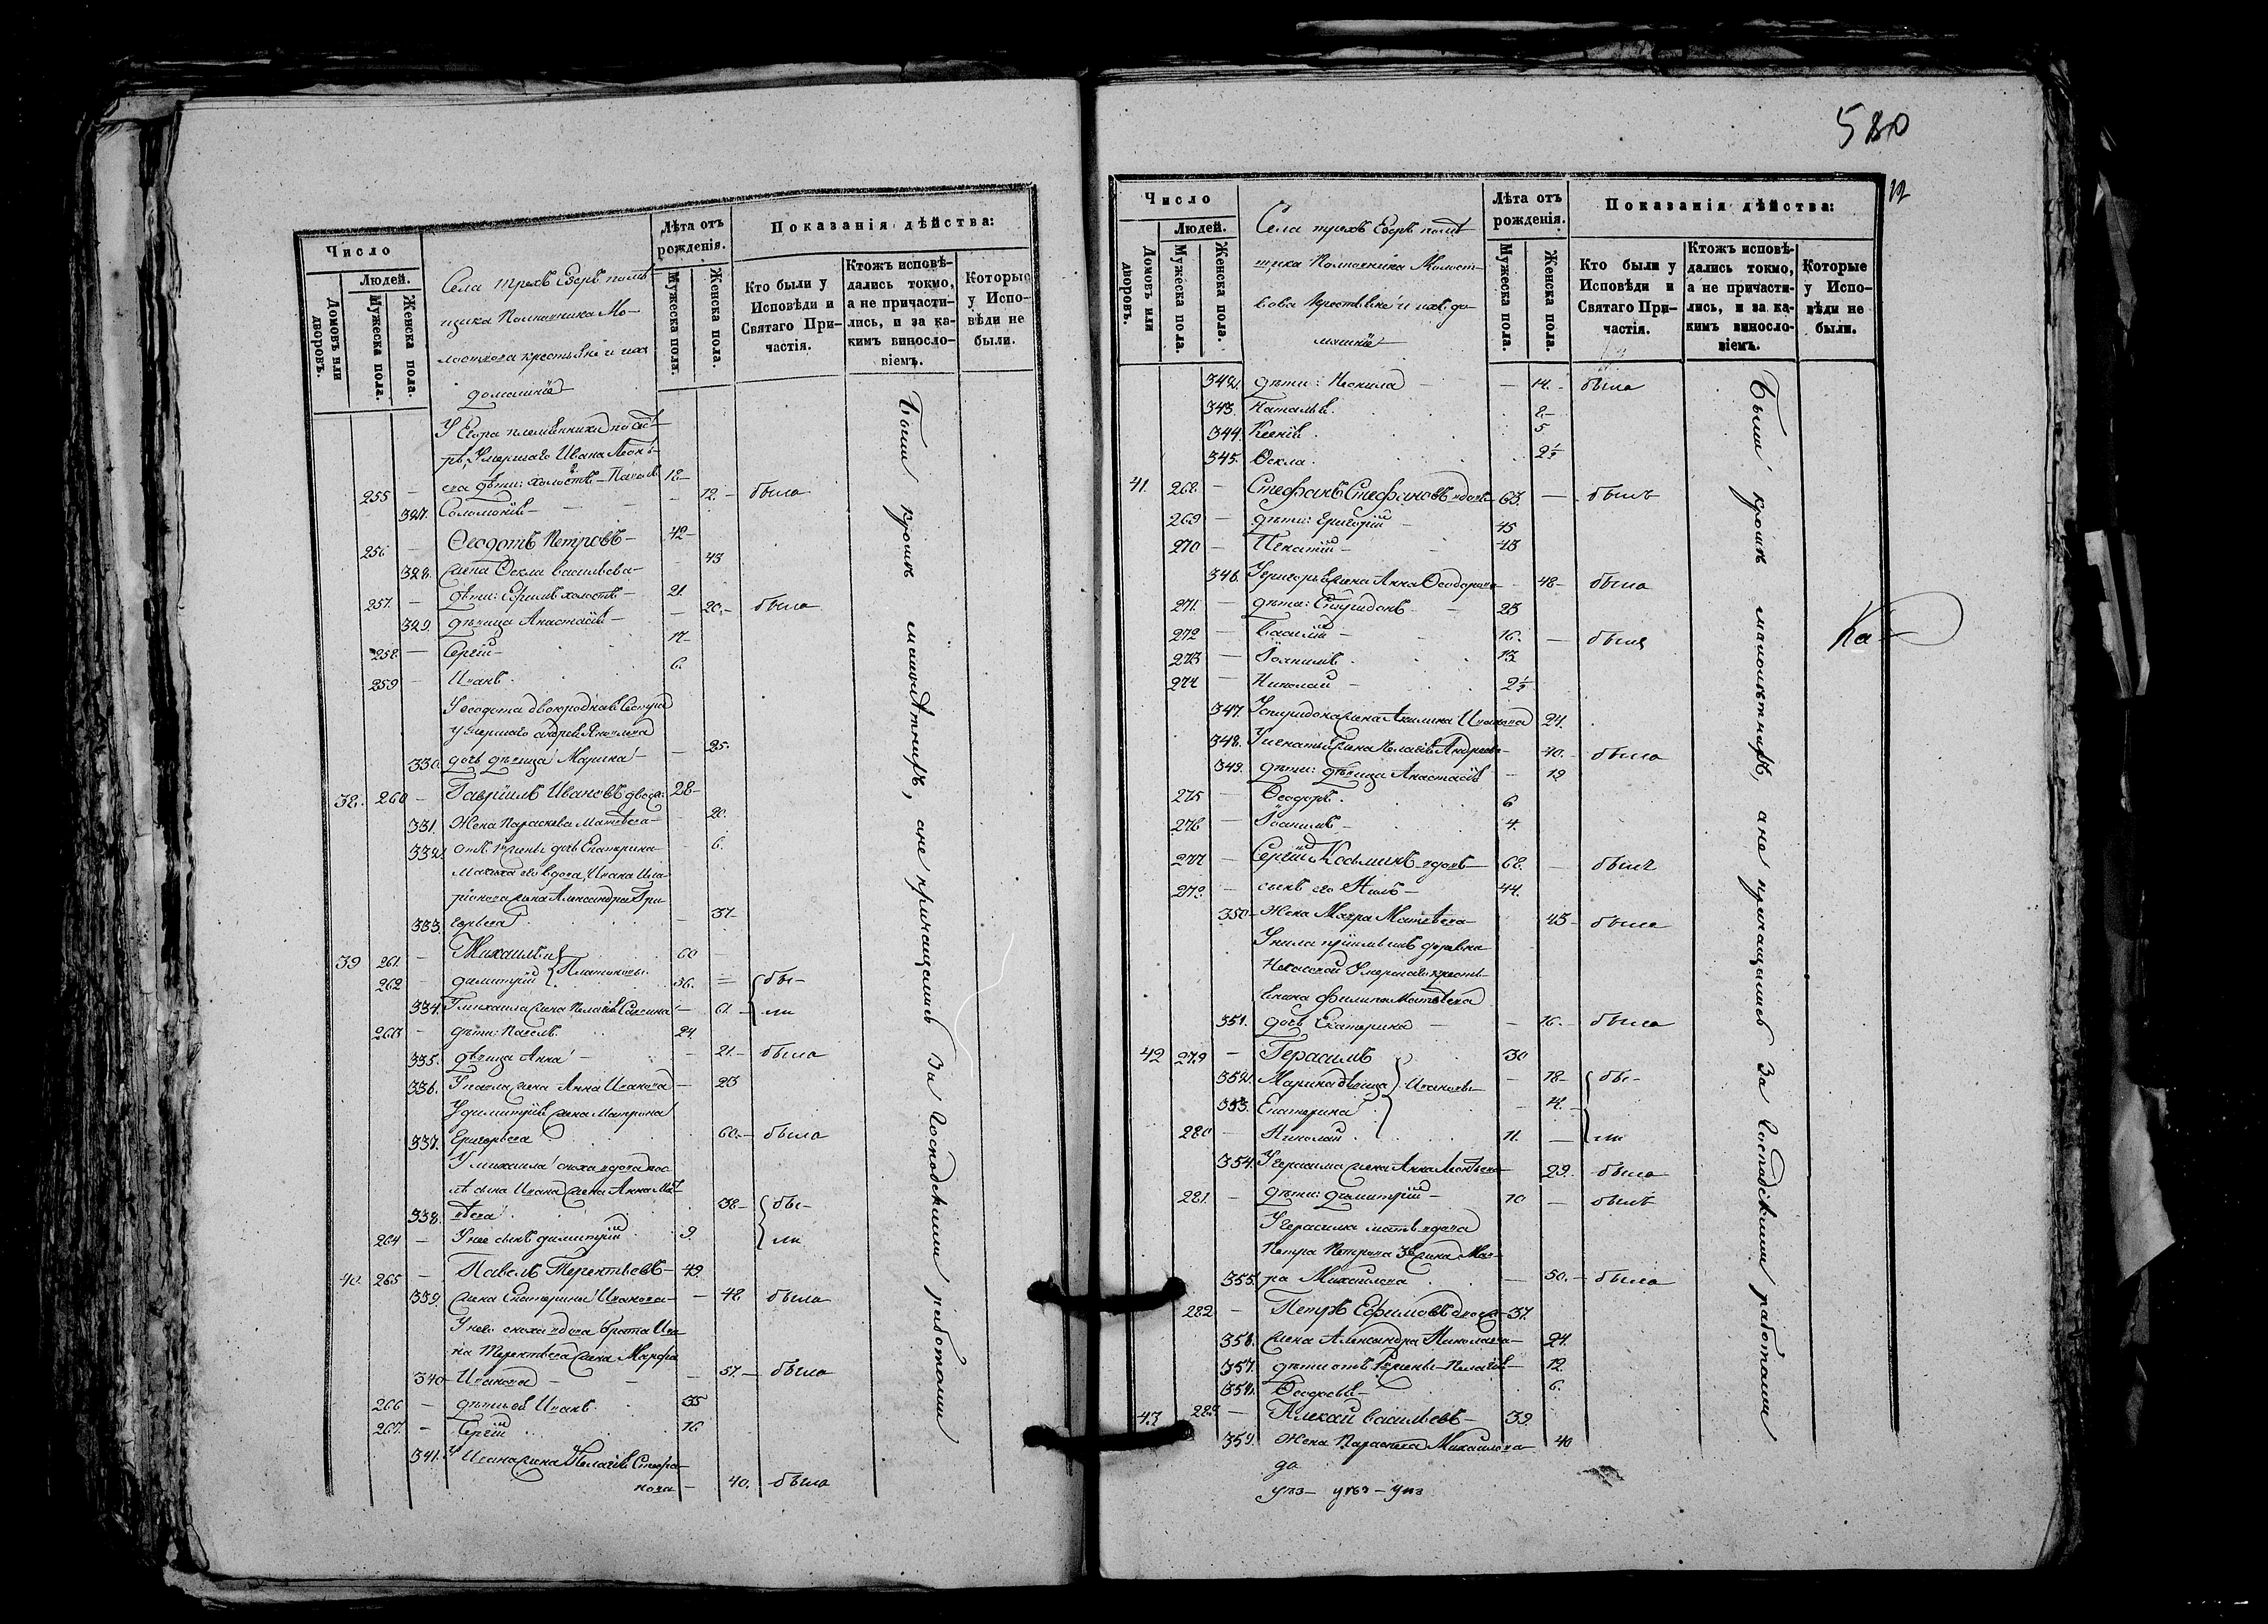 Число
Людей.
Домовъ или дворовъ.
Мужеска пола.
Женска пола.
Села трехъ Езеръ помѣ-
щика Полковника Мо-
лоствова крестьяне и ихъ
домашніе
Лѣта отъ рожденія.
Мужеска пола.
Женска пола.
Показанія дѣйства:
Кто были у Исповѣди и Святаго При-
частія.
Ктожъ исповѣ-
дались токмо,
а не причасти-
лись, и за ка-
кимъ виносло-
віемъ.
Которые у Испо-
вѣди не были.
У Егора племянники по сест-
рѣ, Умершаго Ивана
255 — дѣти: холостъ — 18
327. Соломонія — 12 — была
256 — Ѳеодотъ Петровъ — 42
328. жена Ѳекла Васильева — 43
257. — дѣти: Ефимъ холостъ — 21
329. дѣвица Анастасія — 20. — была
258. — Сергій — 17
259 — Иванъ 6.
У Ѳеодота двоюроднаго
умершаго Андрея Яковлева
330. дочь дѣвица Марина — 25.
38. 260 — Гавріилъ Ивановъ двоеж. 28
331. Жена Параскева Матвѣева — 20.
332. отъ 1й жены дочь Екатерина — 6.
Мачиха его вдова, Ивана Ила-
ріонова жена Александра Гри-
333. горьева 37
39 261. — Михаилъ и 60
262 — Димитрій Платоновы 36. бы-
334. У Михаила жена Пелагія Саввина 61. ли
263 — дѣти: Павелъ 24.
335. дѣвица Анна — 21. — была
336. У Павла жена Анна Иванова — 23
У Димитрія жена Матрона
337. Григорьева 60. — была
У Михаила сноха вдова пос-
лѣ сына Ивана жена Анна Мат-
338. вѣева 38 — бы-
264 — У нее сынъ Димитрій 9. ли
40. 265 — Павелъ Терентьевъ — 49.
339. жена Екатерина Иванова — 48 была
У него сноха вдова брата Ива-
на Терентьева жена Марфа
340 Иванова — 57. — была
266 — дѣти ея Иванъ 35
267. — Сергій 16
341. У Ивана жена Пелагія Стефа-
нова — 40. была
Были кромѣ малолѣтнихъ, а не причащались За Господскими работами
580
12
Число
Людей.
Домовъ или дворовъ.
Мужеска пола.
Женска пола.
Села трехъ Езеръ помѣ-
щика Полковника Молост-
вова Крестьяне и ихъ до-
машніе
Лѣта отъ рожденія.
Мужеска пола.
Женска пола.
Показанія дѣйства:
Кто были у Исповѣди и Святаго При-
частія.
Ктожъ исповѣ-
дались токмо,
а не причасти-
лись, и за ка-
кимъ виносло-
віемъ.
Которые у Испо-
вѣди не были.
342. дѣти: Неонила — 14. — была
343. Наталья. 8.
344. Ксенія 5
345. Ѳекла. 2½
41. 268. — Стефанъ Стефановъ вдовъ 63. — былъ
269 — дѣти: Григорій 45
270 — Игнатій — 43
346. У Григорья жена Анна Ѳеодорова — 48 — была
271. — дѣти: Спиридонъ — 23
272 — Василій — 16. — были
273 — Іоаннъ 13
274 — Николай — 2½
347. У Спиридона жена Акилина Иванова 24.
348. У Игнатія жена Пелагія Андреева — 40. — была
349. дѣти: дѣвица Анастасія — 19
275 — Ѳеодоръ. 6
276 — Іоаннъ — 4.
277 — Сергій Косминъ вдовъ 68. — былъ
278. — сынъ его Нилъ — 44.
350 — Жена Мавра Матвѣева 45 — была
У Нила
умершаго кресть-
янина Филипа Матвѣева
351. дочь Екатерина — 16. — была
42 279 — Герасимъ 30
352. Марина дѣвица Ивановы — 18 — бы-
353. Екатерина — 14.
280 — Николай 11. — ли
354. У Герасима жена Анна 29. была
281. — дѣти: Димитрій — 10 — былъ
У Герасима мать вдова
Петра Петрова 3я жена Мав-
355. ра Михайлова — 50. — была
282 — Петръ Ефимовъ двоеж. 37.
356. жена Александра Николаева — 24.
357. дѣти отъ 1й жены — Пелагія — 12.
358. Ѳеодосья — 6.
43 283 — Алексій Васильевъ — 39.
359. Жена Параскева Михайлова 40
Были кромѣ малолѣтнихъ, а не причащались За Господскими работами
Ка-